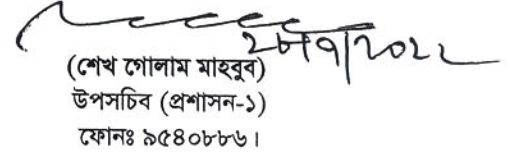 ২৮/৭/২০২২
(শেখ গোলাম মাহবুব)
উপসচিব (প্রশাসন-১)
ফোনঃ ৯৫৪০৮৮৬।